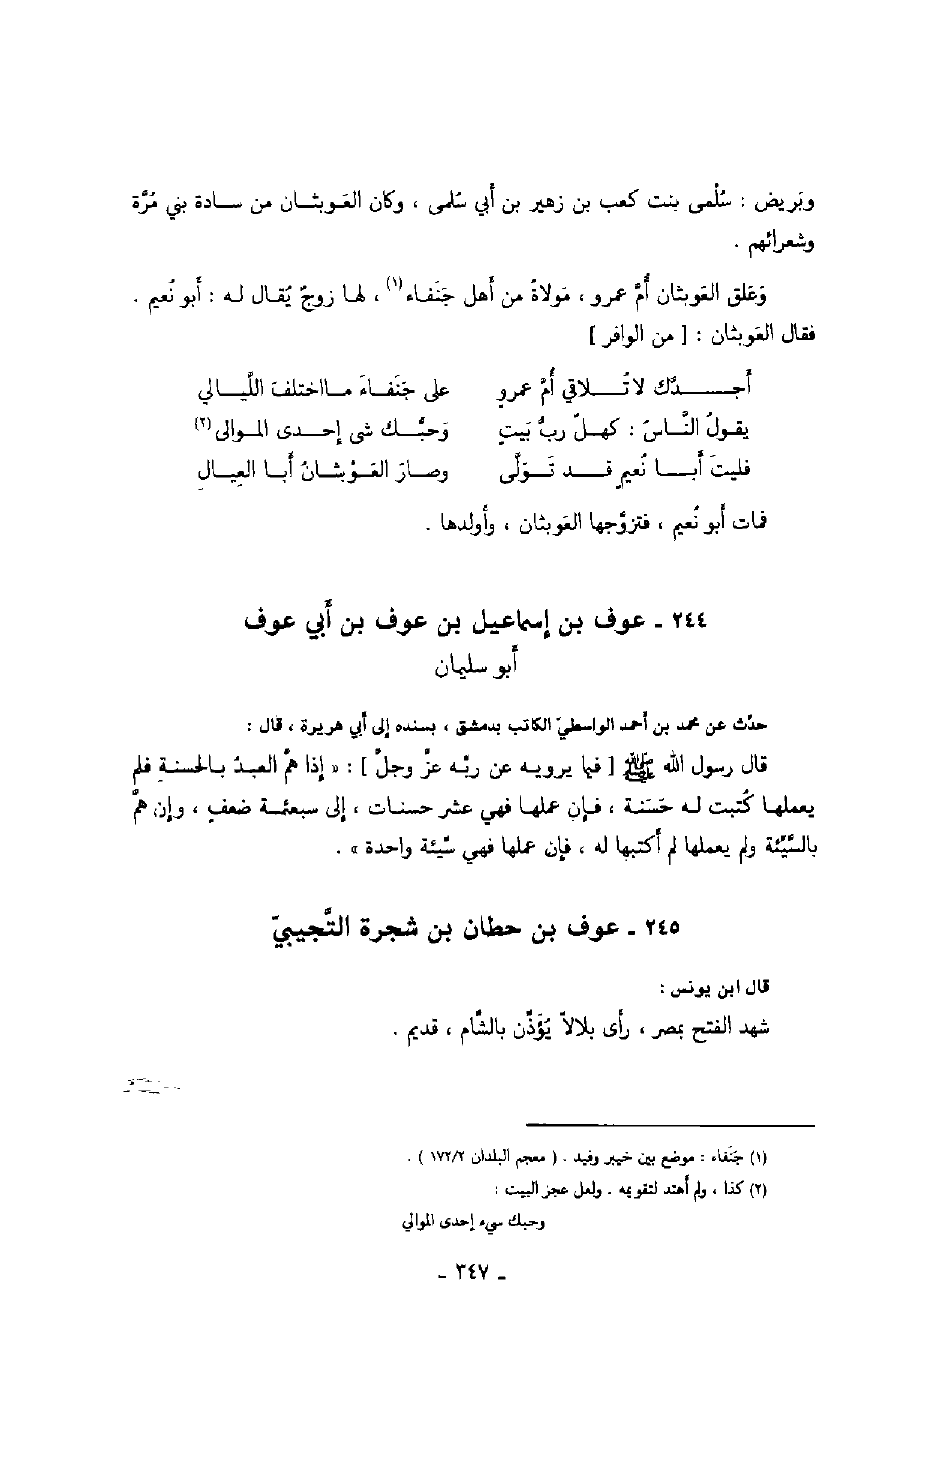 وبَريض : سُلْمى بنت كعب بن زهير بن أبي سُلمى ، وكان العَوبثان من سادة بني مُرَّة
وشعرائهم .
وَعَلق العَوبثان أُمَّ عمرو ، مَولاةً من أهل جَنَفاء(١) ، لها زوجٌ يُقال له : أبو نُعيم .
فقال العَوبثان : [ من الوافر ]
أجدّك لا تُلاقي أُمَّ عمروٍ    على جَنَفاءَ ما اختلفَ اللَّيالي
يقولُ النَّاسُ : كهلٌ ربُّ بَيتٍ    وَحبُّك شى إحدى الموالى(٢)
فليتَ أبا نُعيمٍ قد تَولَّى    وصارَ العَوْبثانُ أبا العِيالِ
فمات أبو نُعيم ، فتزوَّجها العَوبثان ، وأولدها .
٢٤٤ - عوف بن إسماعيل بن عوف بن أبي عوف
أبو سليمان
حدَّث عن محمد بن أحمد الواسطيّ الكاتب بدمشق ، بسنده إلى أبي هريرة ، قال :
قال رسول الله ﷺ [ فيما يرويه عن ربّه عزَّ وجلَّ ] : « إذا همَّ العبدُ بالحسنةِ فلم
يعملها كُتبت له حَسَنة ، فإن عملها فهي عشر حسنات ، إلى سبعمئة ضعفٍ ، وإن همَّ
بالسَّيِّئة ولم يعملها لم أكتبها له ، فإن عملها فهي سيِّئة واحدة » .
٢٤٥ - عوف بن حطان بن شجرة التُّجيبيّ
قال ابن يونس :
شهد الفتح بمصر ، رأى بلالاً يُؤَذِّن بالشَّام ، قديم .
(١) جَنَفاء : موضع بين خيبر وفيد . ( معجم البلدان ١٧٢/٢ ) .
(٢) كذا ، ولم أهتد لتقويمه . ولعل عجز البيت :
وحبك سيء إحدى الموالي
- ٣٤٧ -